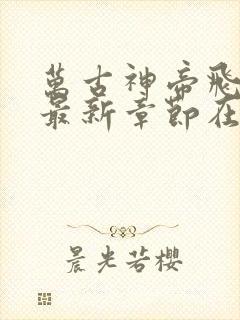 萬古神帝飛
最新章節在
晨光若櫻